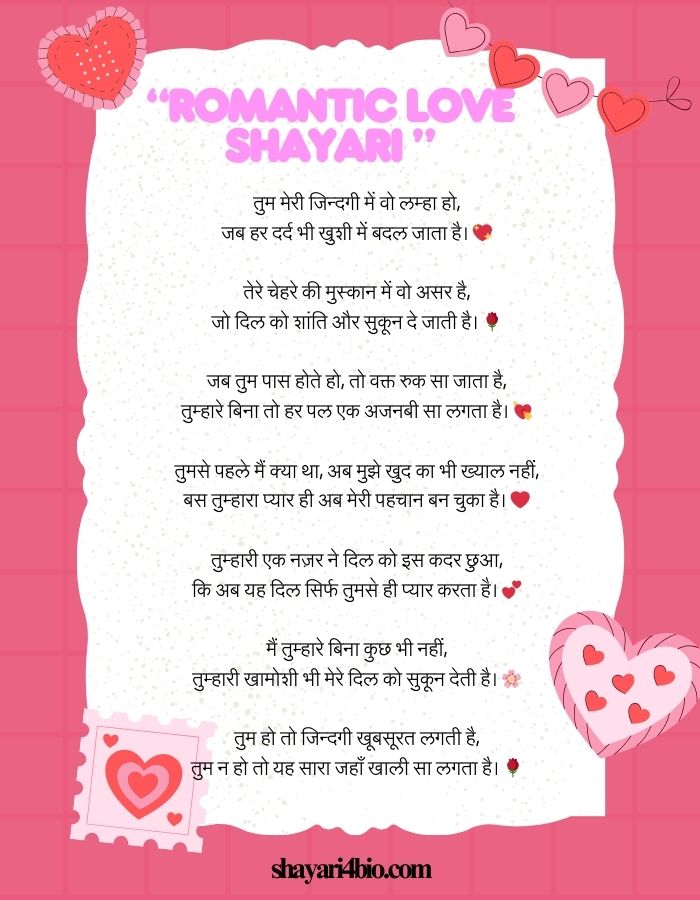 “ROMANTIC LOVE
SHAYARI ”
तुम मेरी जिन्दगी में वो लम्हा हो,
जब हर दर्द भी खुशी में बदल जाता है। 💖
तेरे चेहरे की मुस्कान में वो असर है,
जो दिल को शांति और सुकून दे जाती है। 🌹
जब तुम पास होते हो, तो वक्त रुक सा जाता है,
तुम्हारे बिना तो हर पल एक अजनबी सा लगता है। 💘
तुमसे पहले मैं क्या था, अब मुझे खुद का भी ख्याल नहीं,
बस तुम्हारा प्यार ही अब मेरी पहचान बन चुका है। ❤️
तुम्हारी एक नज़र ने दिल को इस कदर छुआ,
कि अब यह दिल सिर्फ तुमसे ही प्यार करता है। 💕
मैं तुम्हारे बिना कुछ भी नहीं,
तुम्हारी खामोशी भी मेरे दिल को सुकून देती है। 🌸
तुम हो तो जिन्दगी खूबसूरत लगती है,
तुम न हो तो यह सारा जहाँ खाली सा लगता है। 🌹
shayari4bio.com